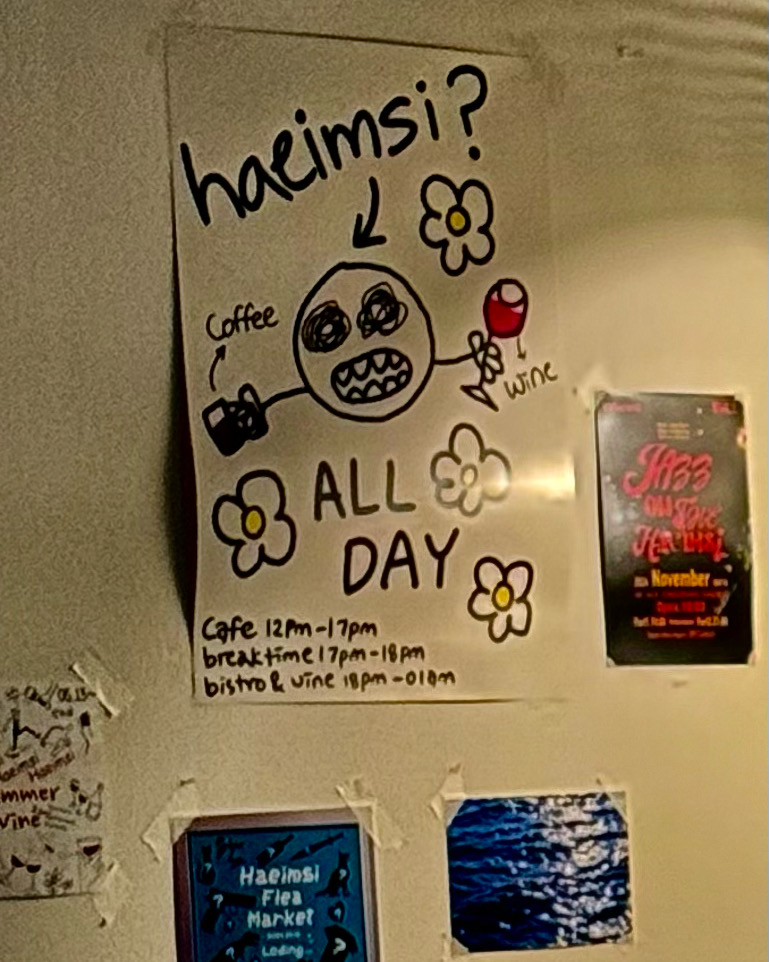 haeimsi?
Coffee
Wine
ALL
DAY
Cafe 12pm-17pm
break time 17pm-18pm
bistro & vine 18pm-01am
JAZZ
ON The
Haeimsi
November
Haeimsi
Haeimsi
mmer
Vine
Haeimsi
Flea
Market
Loading